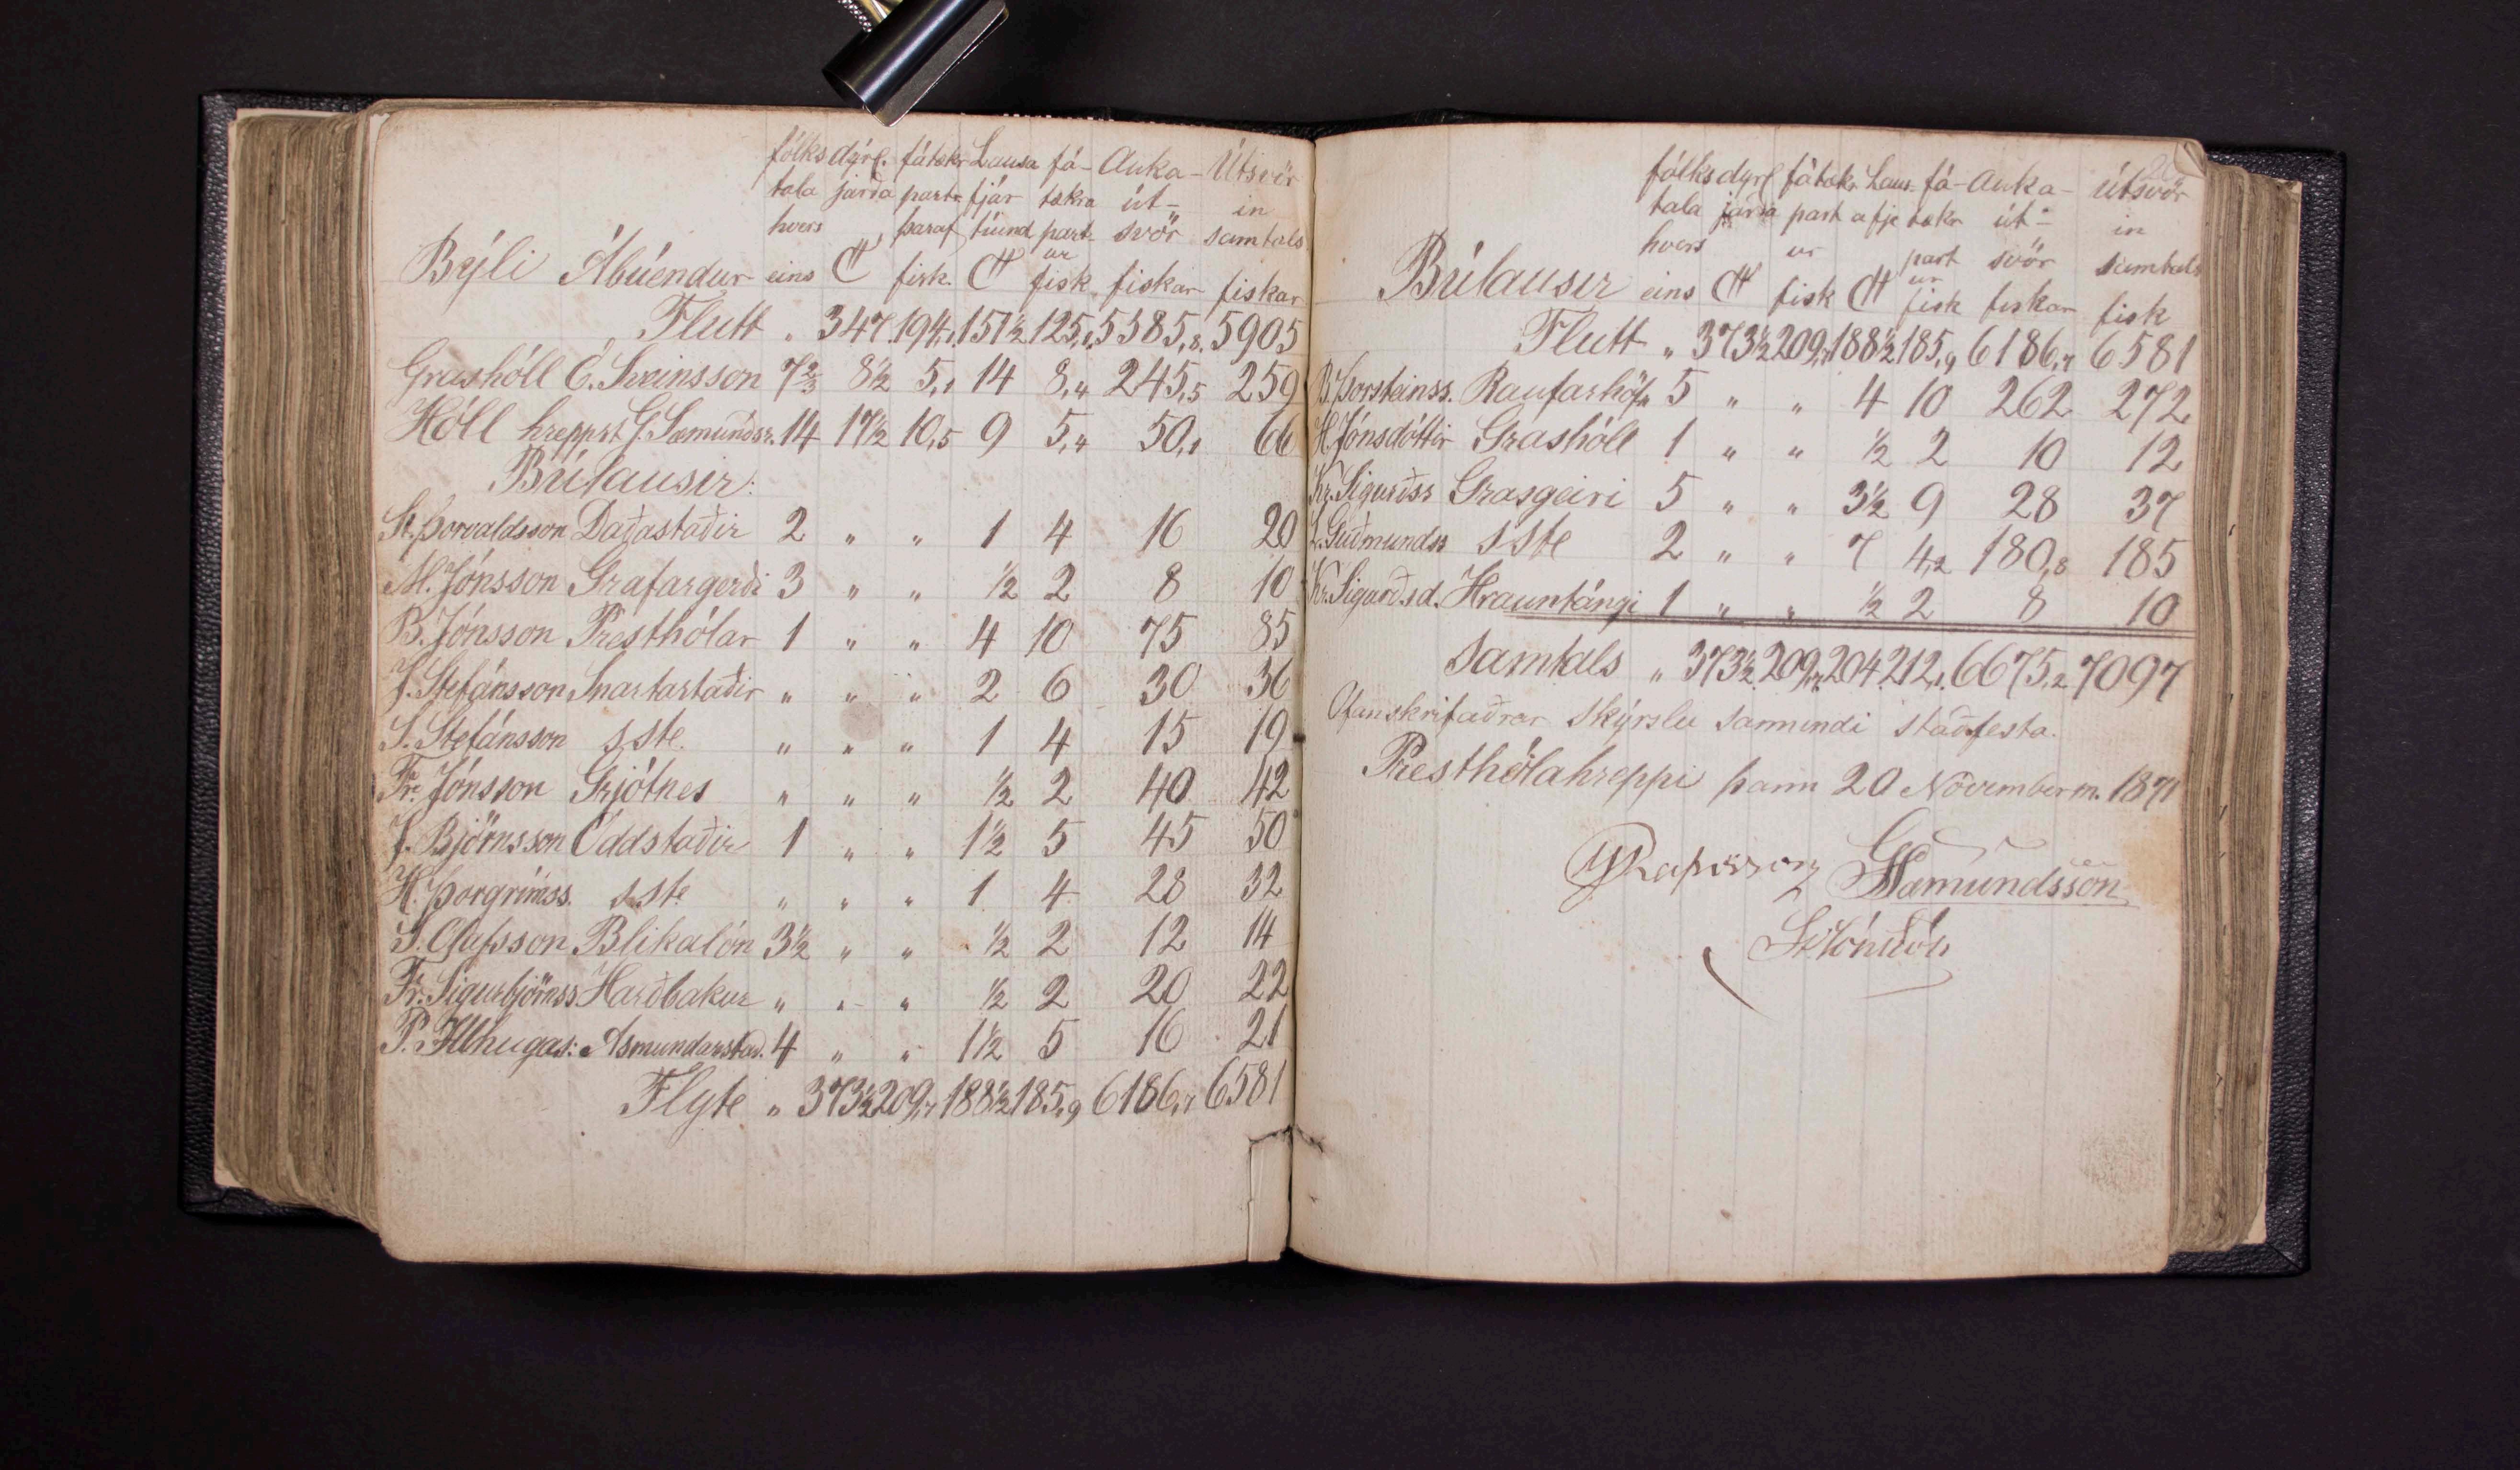 fólks dýrl. fátækr Lausa fá- Auka- Útsvör
tala jarða partr fjár tækra út- in
hvers þaraf tíund part- svör samtals
Býli Ábúendur eins C fisk. C ur fisk fiskar fiskar
Flutt „ 347. 194,1. 151½ 125,1. 5385,8. 5905
Grashóll E. Sveinsson 7⅔ 8½ 5,1 14 8,4 245,5 259
Hóll hreppst. G. Sæmundsr. 14 17½ 10,5 9 5,4 50,1 66
Búlausir:
St. Þorvaldsson Daðastaðir 2 „ „ 1 4 16 20
M. Jónsson Grafargerði 3 „ „ ½ 2 8 10
B. Jónsson Presthólar 1 „ „ 4 10 75 85
J. Stefánsson Snartastaðir „ „ „ 2 6 30 36
S. Stefánsson s.ste. „ „ „ 1 4 15 19
Fr. Jónsson Grjótnes „ „ „ ½ 2 40 42
J. Björnsson Oddstaðir 1 „ „ 1½ 5 45 50
H. Þorgrímss. s.ste „ „ „ 1 4 28 32
S. Olafsson Blikalón 3½ „ „ ½ 2 12 14
Fr. Sigurbjörnss Harðbakur „ „ „ ½ 2 20 22
P. Illhugas: Asmundarstað. 4 „ „ 1½ 5 16 21
Flyt „ 373½ 209,7 188½ 185,9 6186,7 6581
fólks dyrl fátækr Laus- fá- Auka- útsvör
tala jarða part afje tækr út- in
hvers ur part svör samtals
Búlausir eins C fisk C ur fisk fiskar fisk
Flutt „ 373½ 209,7 188½ 185,9 6186,7 6581
B. Þorsteinss. Raufarhöfn 5 „ „ 4 10 262 272
H Jónsdóttir Grashóll 1 „ „ ½ 2 10 12
Kr. Sigurðss Grasgeiri 5 „ „ 3½ 9 28 37
Guðmundss s ste 2 „ „ 7 4,2 180,8 185
Kr. Sigurðsd. Hrauntángi 1 „ „ ½ 2 8 10
Samtals „ 373½ 209,7. 204. 212,1. 6675,2 7097
Ofanskrifaðrar skýrslu sannindi staðfesta.
Presthólahreppi þann 20 Nóvemberm. 1871
Rafnsson GSæmundsson
St. Jónsson